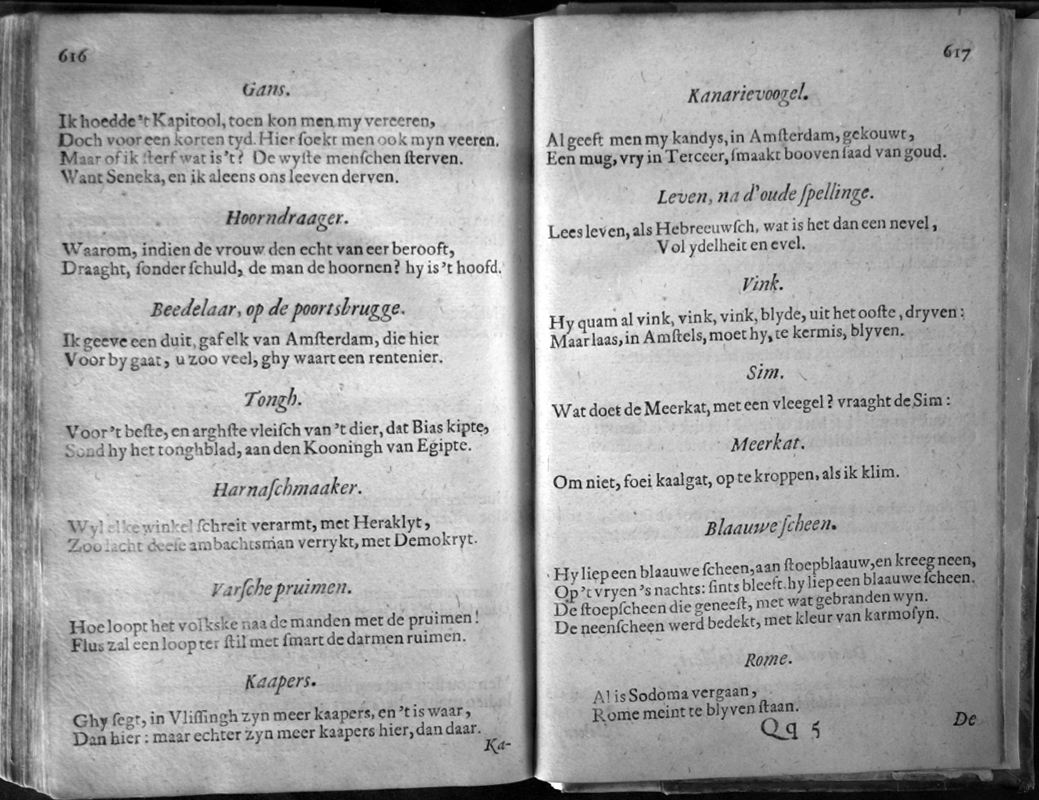 616
Gans.
Ik hoedde 't Kapitool, toen kon men my vereeren,
Doch voor een korten tyd. Hier ſoekt men ook myn veeren.
Maar of ik ſterf wat is 't? De wyſte menſchen ſterven.
Want Seneka, en ik aleens ons leeven derven.
Hoorndraager.
Waarom, indien de vrouw den echt van eer berooft,
Draaght, ſonder ſchuld, de man de hoornen? hy is 't hoofd.
Beedelaar, op de poortsbrugge.
Ik geeve een duit, gaf elk van Amſterdam, die hier
Voor by gaat, u zoo veel, ghy waart een rentenier.
Tongh.
Voor 't beſte, en arghſte vleiſch van 't dier, dat Bias kipte,
Sond hy het tonghblad, aan den Kooningh van Egipte.
Harnaſchmaaker.
Wyl elke winkel ſchreit verarmt, met Heraklyt,
Zoo lacht deeſe ambachtsman verrykt, met Demokryt.
Varſche pruimen.
Hoe loopt het volkske naa de manden met de pruimen!
Flus zal een loop ter ſtil met ſmart de darmen ruimen.
Kaapers.
Ghy ſegt, in Vliſſingh zyn meer kaapers, en 't is waar,
Dan hier: maar echter zyn meer kaapers hier, dan daar.
Ka-
617
Kanarievoogel.
Al geeft men my kandys, in Amſterdam, gekouwt,
Een mug, vry in Terceer, ſmaakt booven ſaad van goud.
Leven, na d'oude ſpellinge.
Lees leven, als Hebreeuwſch, wat is het dan een nevel,
Vol ydelheit en evel.
Vink.
Hy quam al vink, vink, vink, blyde, uit het ooſte, dryven:
Maar laas, in Amſtels, moet hy, te kermis, blyven.
Sim.
Wat doet de Meerkat, met een vleegel? vraaght de Sim:
Meerkat.
Om niet, foei kaalgat, op te kroppen, als ik klim.
Blaauwe ſcheen.
Hy liep een blaauwe ſcheen, aan ſtoepblaauw, en kreeg neen,
Op 't vryen 's nachts: ſints bleeft hy liep een blaauwe ſcheen.
De ſtoepſcheen die geneeſt, met wat gebranden wyn.
De neenſcheen werd bedekt, met kleur van karmoſyn.
Rome.
Al is Sodoma vergaan,
Rome meint te blyven ſtaan.
Qq 5
De